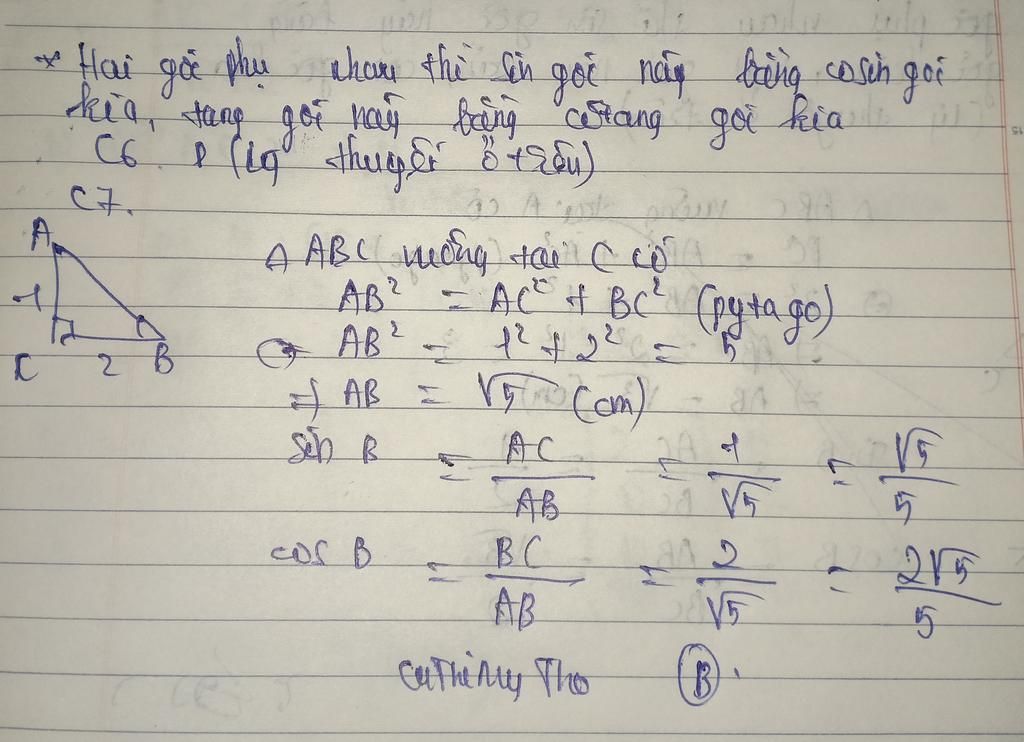 * Hai góc phụ nhau thì sin góc này bằng cosin góc
kia, tang góc này bằng côtang góc kia
C6. (lý thuyết ở trên)
C7.
A
1
C 2 B
Δ ABC vuông tại C có
AB² = AC² + BC² (pytago)
⇔ AB² = 1² + 2² = 5
⇒ AB = √5 (cm)
sin B = AC/AB = 1/√5 = √5/5
cos B = BC/AB = 2/√5 = 2√5/5
B.